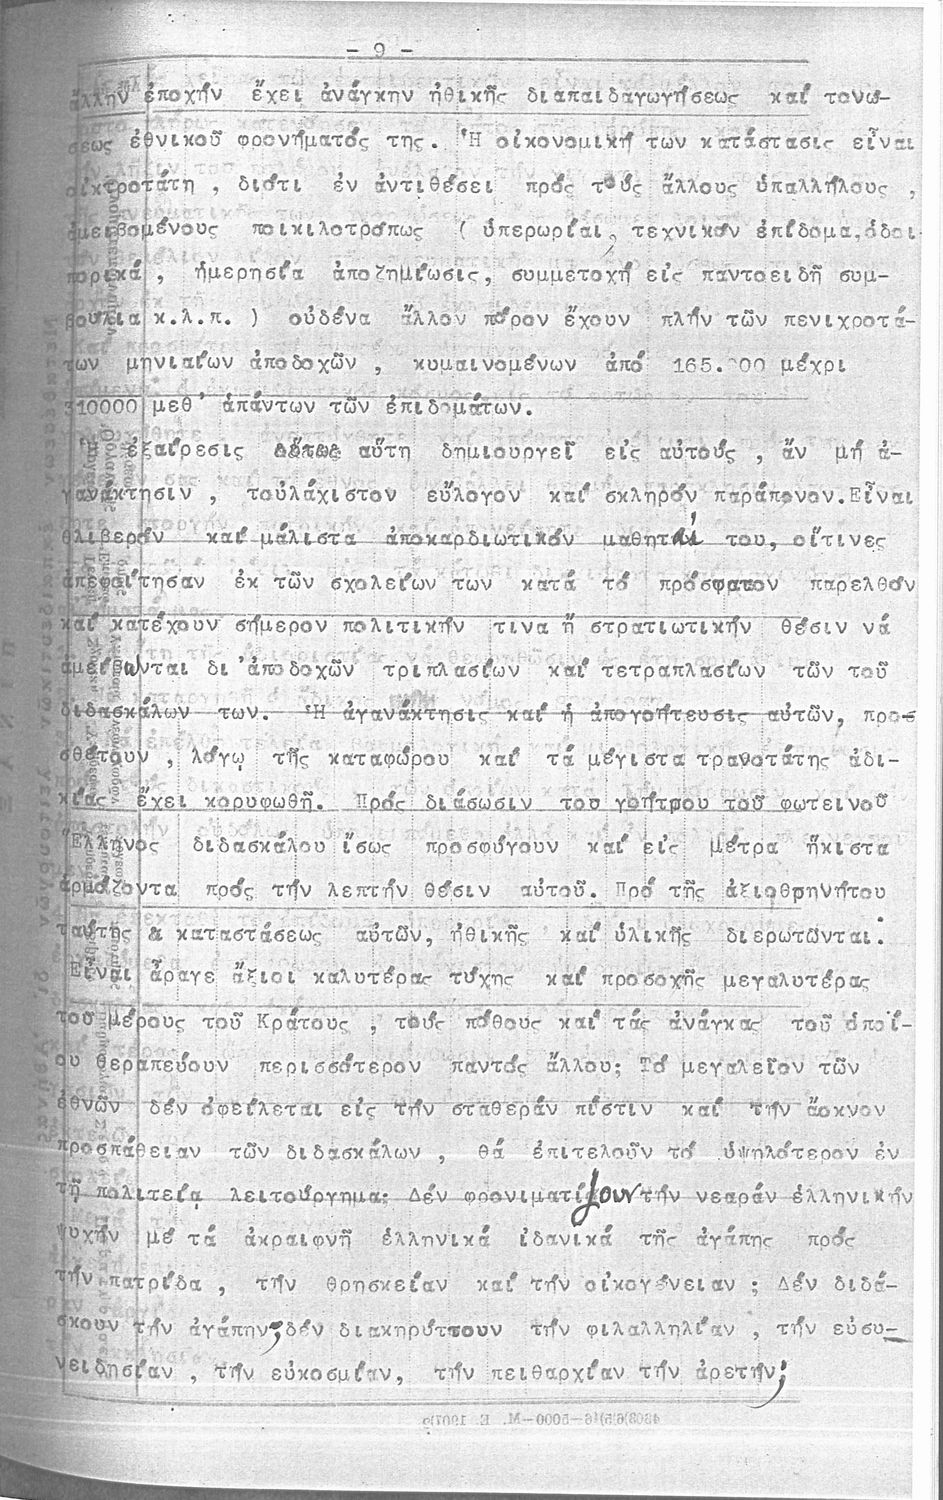 - 9 -
ἄλλην ἐποχήν ἔχει ἀνάγκην ἠθικῆς διαπαιδαγωγήσεως καί τονώ-
σεως ἐθνικοῦ φρονήματός της. Ἡ οἰκονομική των κατάστασις εἶναι
οἰκτροτάτη , διότι ἐν ἀντιθέσει πρός τούς ἄλλους ὑπαλλήλους ,
ἀμειβομένους ποικιλοτρόπως ( ὑπερωρίαι, τεχνικόν ἐπίδομα,ὁδοι-
πορικά , ἡμερησία ἀποζημίωσις, συμμετοχή εἰς παντοειδῆ συμ-
βούλια κ.λ.π. ) οὐδένα ἄλλον πόρον ἔχουν πλήν τῶν πενιχροτά-
των μηνιαίων ἀποδοχῶν , κυμαινομένων ἀπό 165.000 μέχρι
310000 μεθ' ἁπάντων τῶν ἐπιδομάτων.
Ἡ ἐξαίρεσις αὕτη δημιουργεῖ εἰς αὐτούς , ἄν μή ἀ-
γανάκτησιν , τοὐλάχιστον εὔλογον καί σκληρόν παράπονον.Εἶναι
θλιβερόν καί μάλιστα ἀποκαρδιωτικόν μαθηταί του, οἵτινες
ἀπεφοίτησαν ἐκ τῶν σχολείων των κατά τό πρόσφατον παρελθόν
καί κατέχουν σήμερον πολιτικήν τινα ἤ στρατιωτικήν θέσιν νά
ἀμείβωνται δι'ἀποδοχῶν τριπλασίων καί τετραπλασίων τῶν τοῦ
διδασκάλων των. Ἡ ἀγανάκτησις καί ἡ ἀπογοήτευσις αὐτῶν, προσ-
θέτουν , λόγῳ τῆς καταφώρου καί τά μέγιστα τρανοτάτης ἀδι-
κίας ἔχει κορυφωθῆ. Πρός διάσωσιν του γοήτρου τοῦ φωτεινοῦ
Ἕλληνος διδασκάλου ἴσως προσφύγουν καί εἰς μέτρα ἥκιστα
ἁρμόζοντα πρός τήν λεπτήν θέσιν αὐτοῦ. Πρό τῆς ἀξιοθρηνήτου
ταύτης καταστάσεως αὐτῶν, ἠθικῆς καί ὑλικῆς διερωτῶνται.
Εἶναι ἆραγε ἄξιοι καλυτέρας τύχης καί προσοχῆς μεγαλυτέρας
τοῦ μέρους τοῦ Κράτους , τούς πόθους καί τάς ἀνάγκας τοῦ ὁποί-
ου θεραπεύουν περισσότερον παντός ἄλλου; Τό μεγαλεῖον τῶν
ἐθνῶν δέν ὀφείλεται εἰς τήν σταθεράν πίστιν καί τήν ἄοκνον
προσπάθειαν τῶν διδασκάλων , θά ἐπιτελοῦν τό ὑψηλότερον ἐν
τῇ πολιτείᾳ λειτούργημα; Δέν φρονιματίζουν τήν νεαράν ἑλληνικήν
ψυχήν μέ τά ἀκραιφνῆ ἑλληνικά ἰδανικά τῆς ἀγάπης πρός
τήν πατρίδα , τήν θρησκείαν καί τήν οἰκογένειαν ; Δέν διδά-
σκουν τήν ἀγάπην; δέν διακηρύττουν τήν φιλαλληλίαν , τήν εὐσυ-
νειδησίαν , τήν εὐκοσμίαν, τήν πειθαρχίαν τήν ἀρετήν;